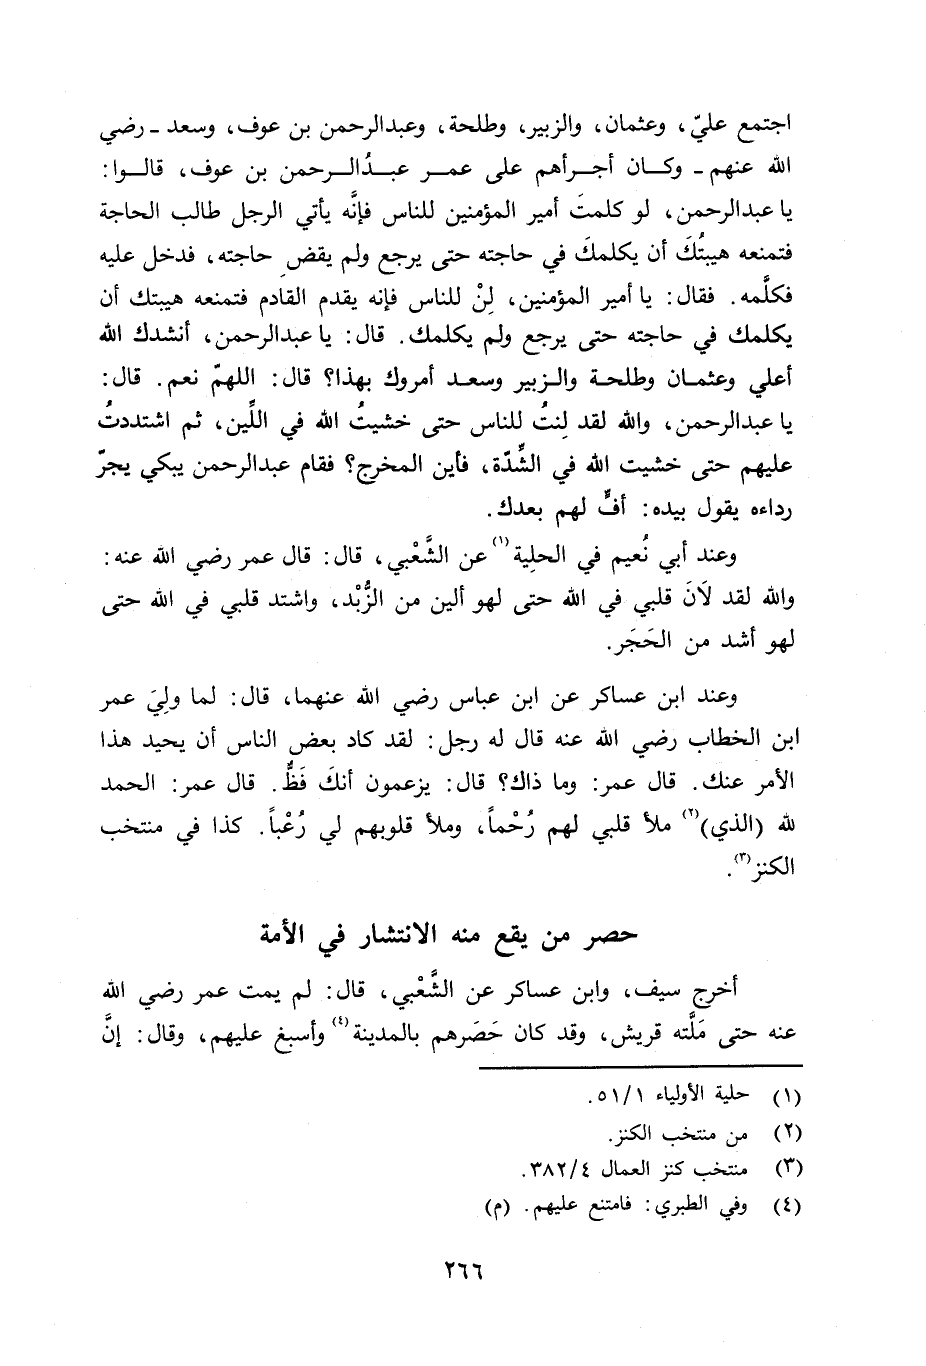 اجتمع عليّ، وعثمان، والزبير، وطلحة، وعبدالرحمن بن عوف، وسعد ـ رضي
الله عنهم ـ وكـان أجـرأهم على عمـر عبـدُالـرحمن بن عوف، قالـوا:
يا عبدالرحمن، لو كلمتَ أمير المؤمنين للناس فإنَّه يأتي الرجل طالب الحاجة
فتمنعه هيبتُكَ أن يكلمكَ في حاجته حتى يرجع ولم يقضِ حاجته، فدخل عليه
فكلَّمه. فقال: يا أمير المؤمنين، لِنْ للناس فإنه يقدم القادم فتمنعه هيبتك أن
يكلمك في حاجته حتى يرجع ولم يكلمك. قال: يا عبدالرحمن، أنشدك الله
أعلي وعثمـان وطلحـة والـزبير وسعـد أمروك بهذا؟ قال: اللهمّ نعم. قال:
يا عبدالرحمن، والله لقد لِنتُ للناس حتى خشيتُ الله في اللِّين، ثم اشتددتُ
عليهم حتى خشيت الله في الشِّدّة، فأين المخرج؟ فقام عبدالرحمن يبكي يجرّ
رداءه يقول بيده: أفٍّ لهم بعدك.
وعند أبي نُعيم في الحلية(١) عن الشَّعْبي، قال: قال عمر رضي الله عنه:
والله لقد لَانَ قلبي في الله حتى لهو ألين من الزُّبْد، واشتد قلبي في الله حتى
لهو أشد من الحَجَر.
وعند ابن عساكر عن ابن عباس رضي الله عنهما، قال: لما وليَ عمر
ابن الخطاب رضي الله عنه قال له رجل: لقد كاد بعض الناس أن يحيد هذا
الأمر عنك. قال عمر: وما ذاك؟ قال: يزعمون أنكَ فَظٌّ. قال عمر: الحمد
لله (الذي)(٢) ملأ قلبي لهم رُحْماً، وملأ قلوبهم لي رُعْباً. كذا في منتخب
الكنز(٣).
حصر من يقع منه الانتشار في الأمة
أخرج سيف، وابن عساكر عن الشَّعْبي، قال: لم يمت عمر رضي الله
عنه حتى مَلَّته قريش، وقد كان حَصَرهم بالمدينة(٤) وأسبغ عليهم، وقال: إنَّ
(١) حلية الأولياء ٥١/١.
(٢) من منتخب الكنز.
(٣) منتخب كنز العمال ٣٨٢/٤.
(٤) وفي الطبري: فامتنع عليهم. (م)
٢٦٦